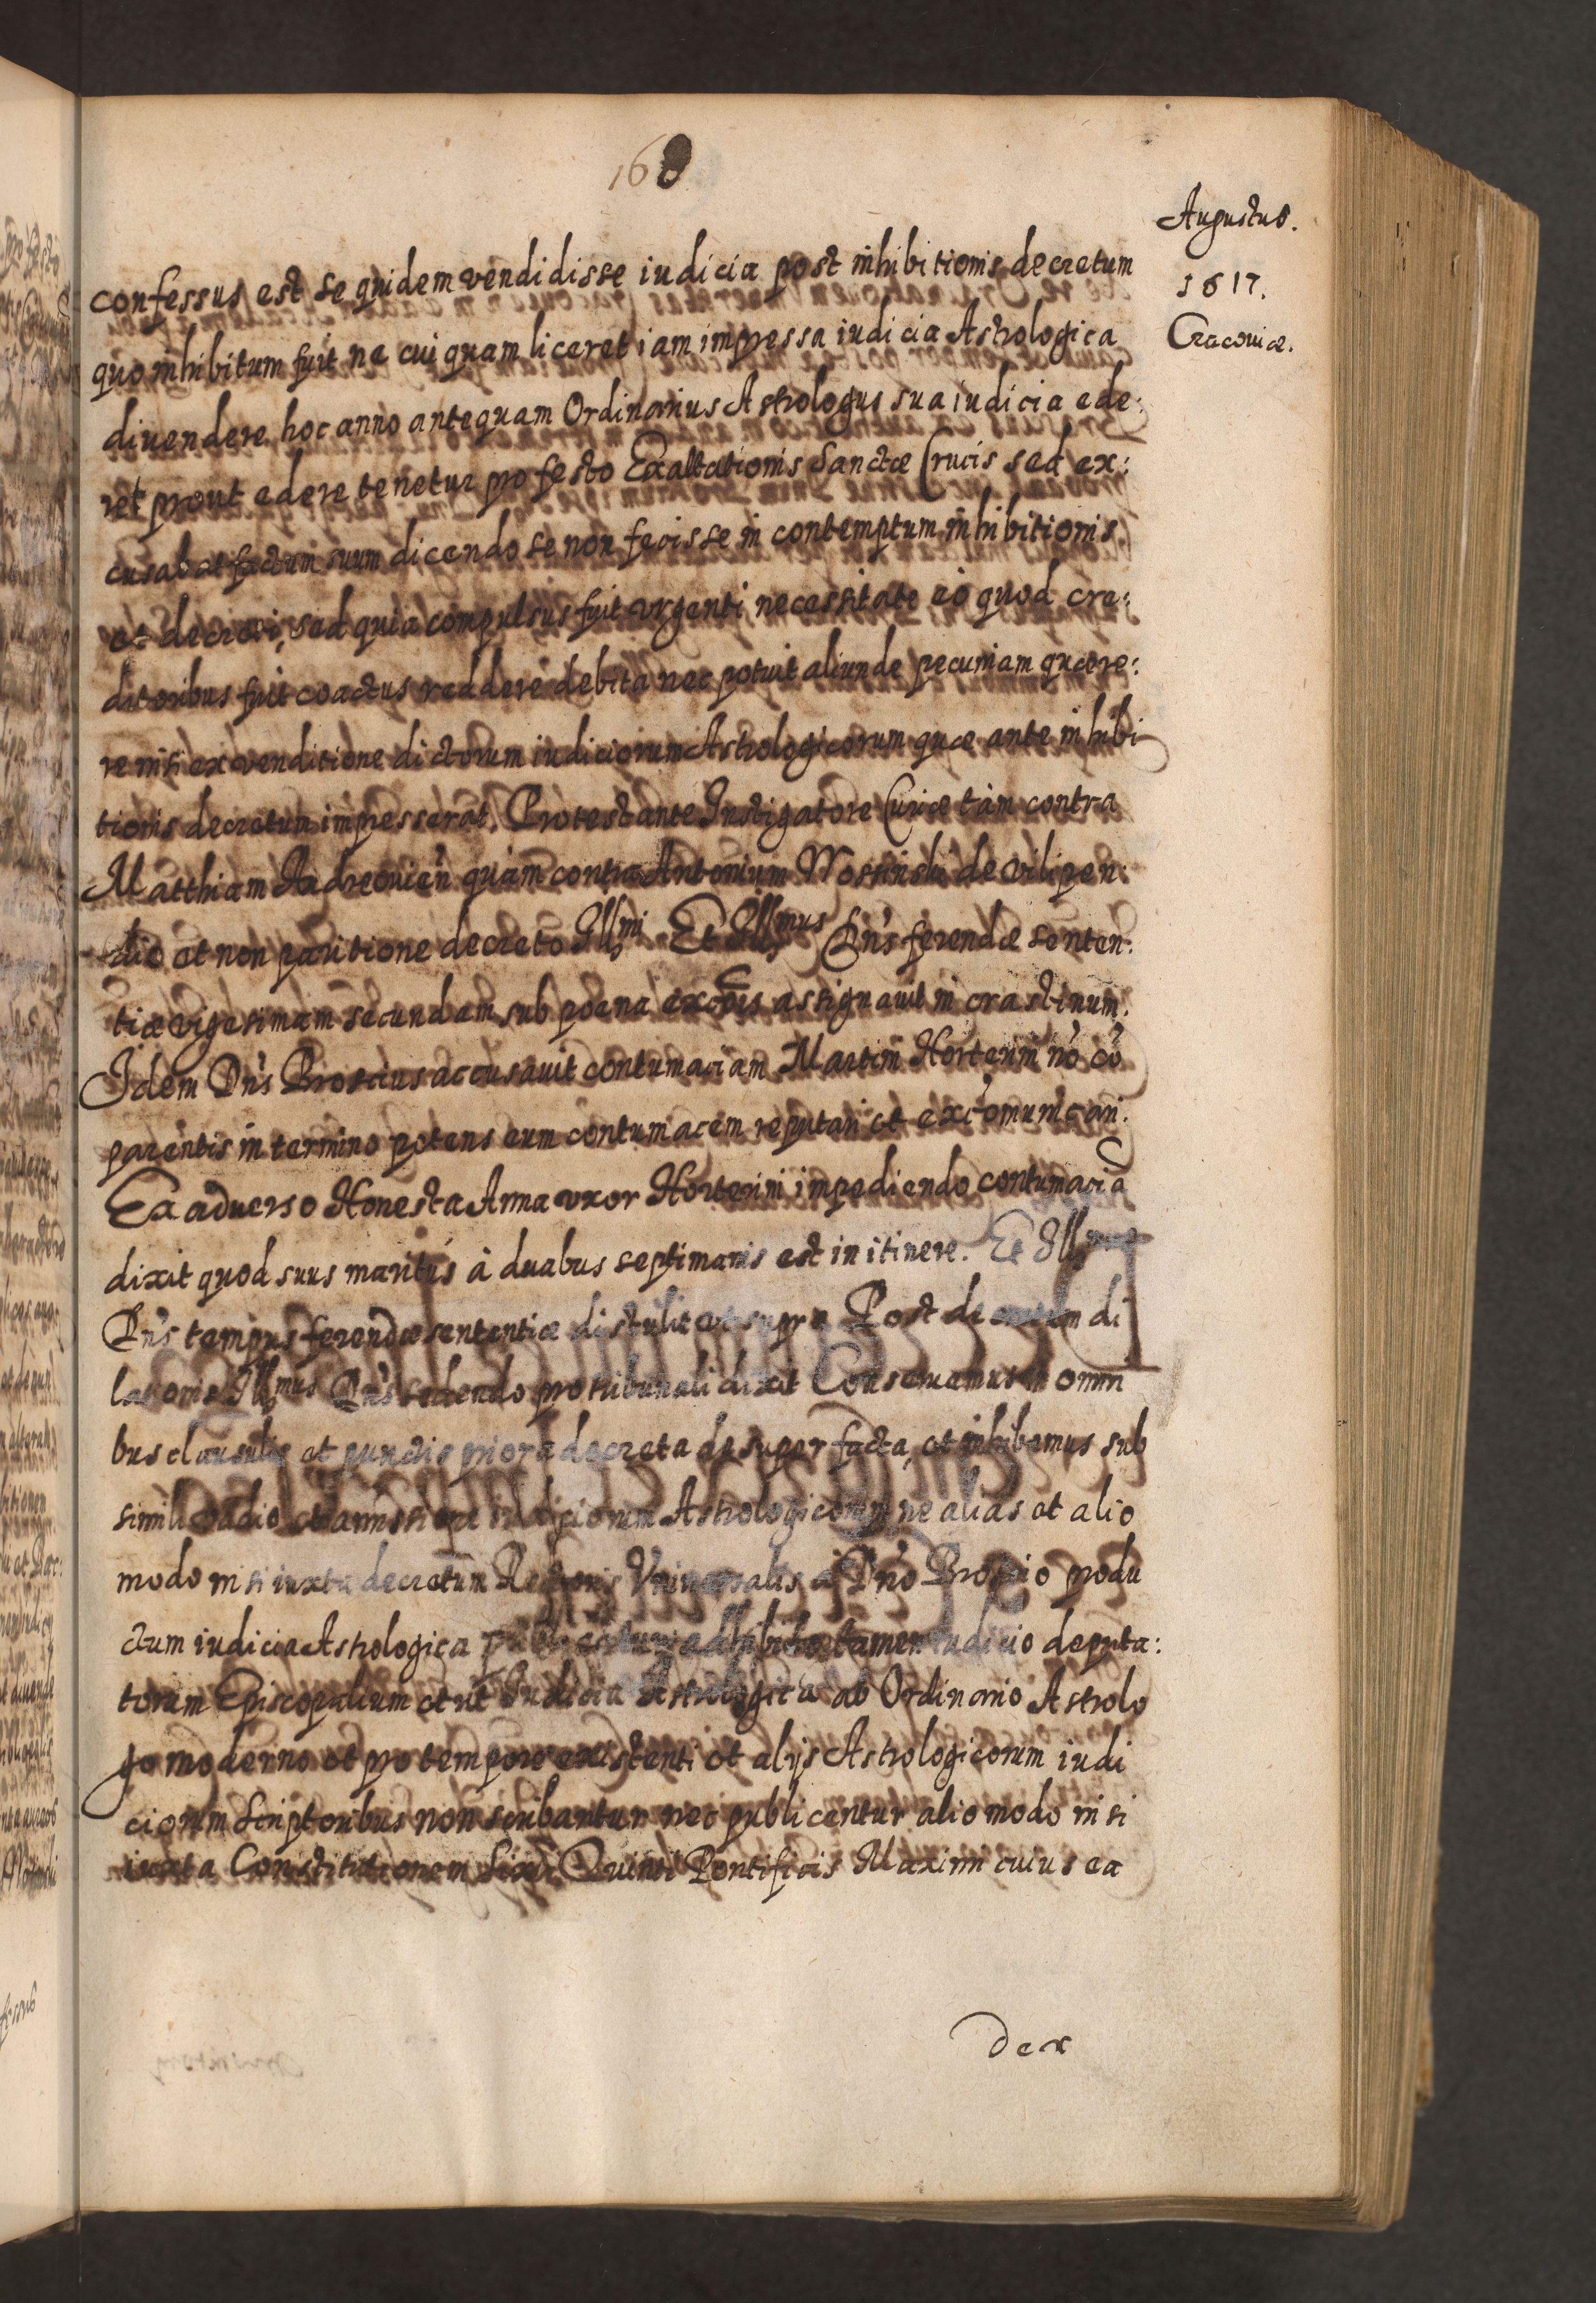 168
Augustus.
1617.
Cracoviæ.
confessus est se quidem vendidisse iudicia post inhibitionis decretum
quo inhibitum fuit ne cuiquam liceret iam impressa iudicia Astrologica
divendere hoc anno antequam Ordinarius Astrologus sua iudicia ede:
ret prout edere tenetur pro festo Exaltationis Sanctæ Crucis sed ex:
cusabat factum suum dicendo se non fecisse in contemptum inhibitionis
et decreti, sed quia compulsus fuit vrgenti necessitate eò quod cre:
ditoribus fuit coactus reddere debita nec potuit aliunde pecuniam quære:
re nisi ex venditione dictorum iudiciorum Astrologicorum quæ ante inhibi
tionis decretum impresserat. Protestante Instigatore Curiæ tàm contra
Matthiam Andreovien̄ quàm contra Antonium Wosinski de vilipen:
dio et non paritione decreto Illmi. Et Illmus Dn̄s ferendæ senten:
tiæ vigesimam secundam sub poena exc̄ois assignauit in crastinum.
Idem Dn̄s Broscius accusauit contumaciam Martini Horterini nō cō
parentis in termino petens eum contumacem reputari et exc̄omunicari.
Ex adverso Honesta Anna vxor Horterini impediendo contumaciā
dixit quod suus maritus à duabus septimanis est in itinere. Et Illmus
Dn̄s tempus ferendæ sententiæ distulit ut supra Post decretum di
lationis Illmus Dn̄s sedendo pro tribunali dixit Conservamus in omni
bus clausulis et punctis priora decreta desuper facta, et inhibemus sub
simili vadio et amissione iudiciorum Astrologicorum ne alias et alio
modo nisi iuxta decretum Rectoris Vniversalis à Dn̄o Broscio produ
ctum iudicia Astrologica adhibito tamen iudicio deputa:
torum Episcopalium et ut Iudicia Astrologica ab Ordinario Astrolo
go moderno et pro tempore existenti et alijs Astrologicorum iudi
ciorum Scriptoribus non scribantur nec publicentur alio modo nisi
iuxta Constitutionem Sixti Quinti Pontificis Maximi cuius ea
dex